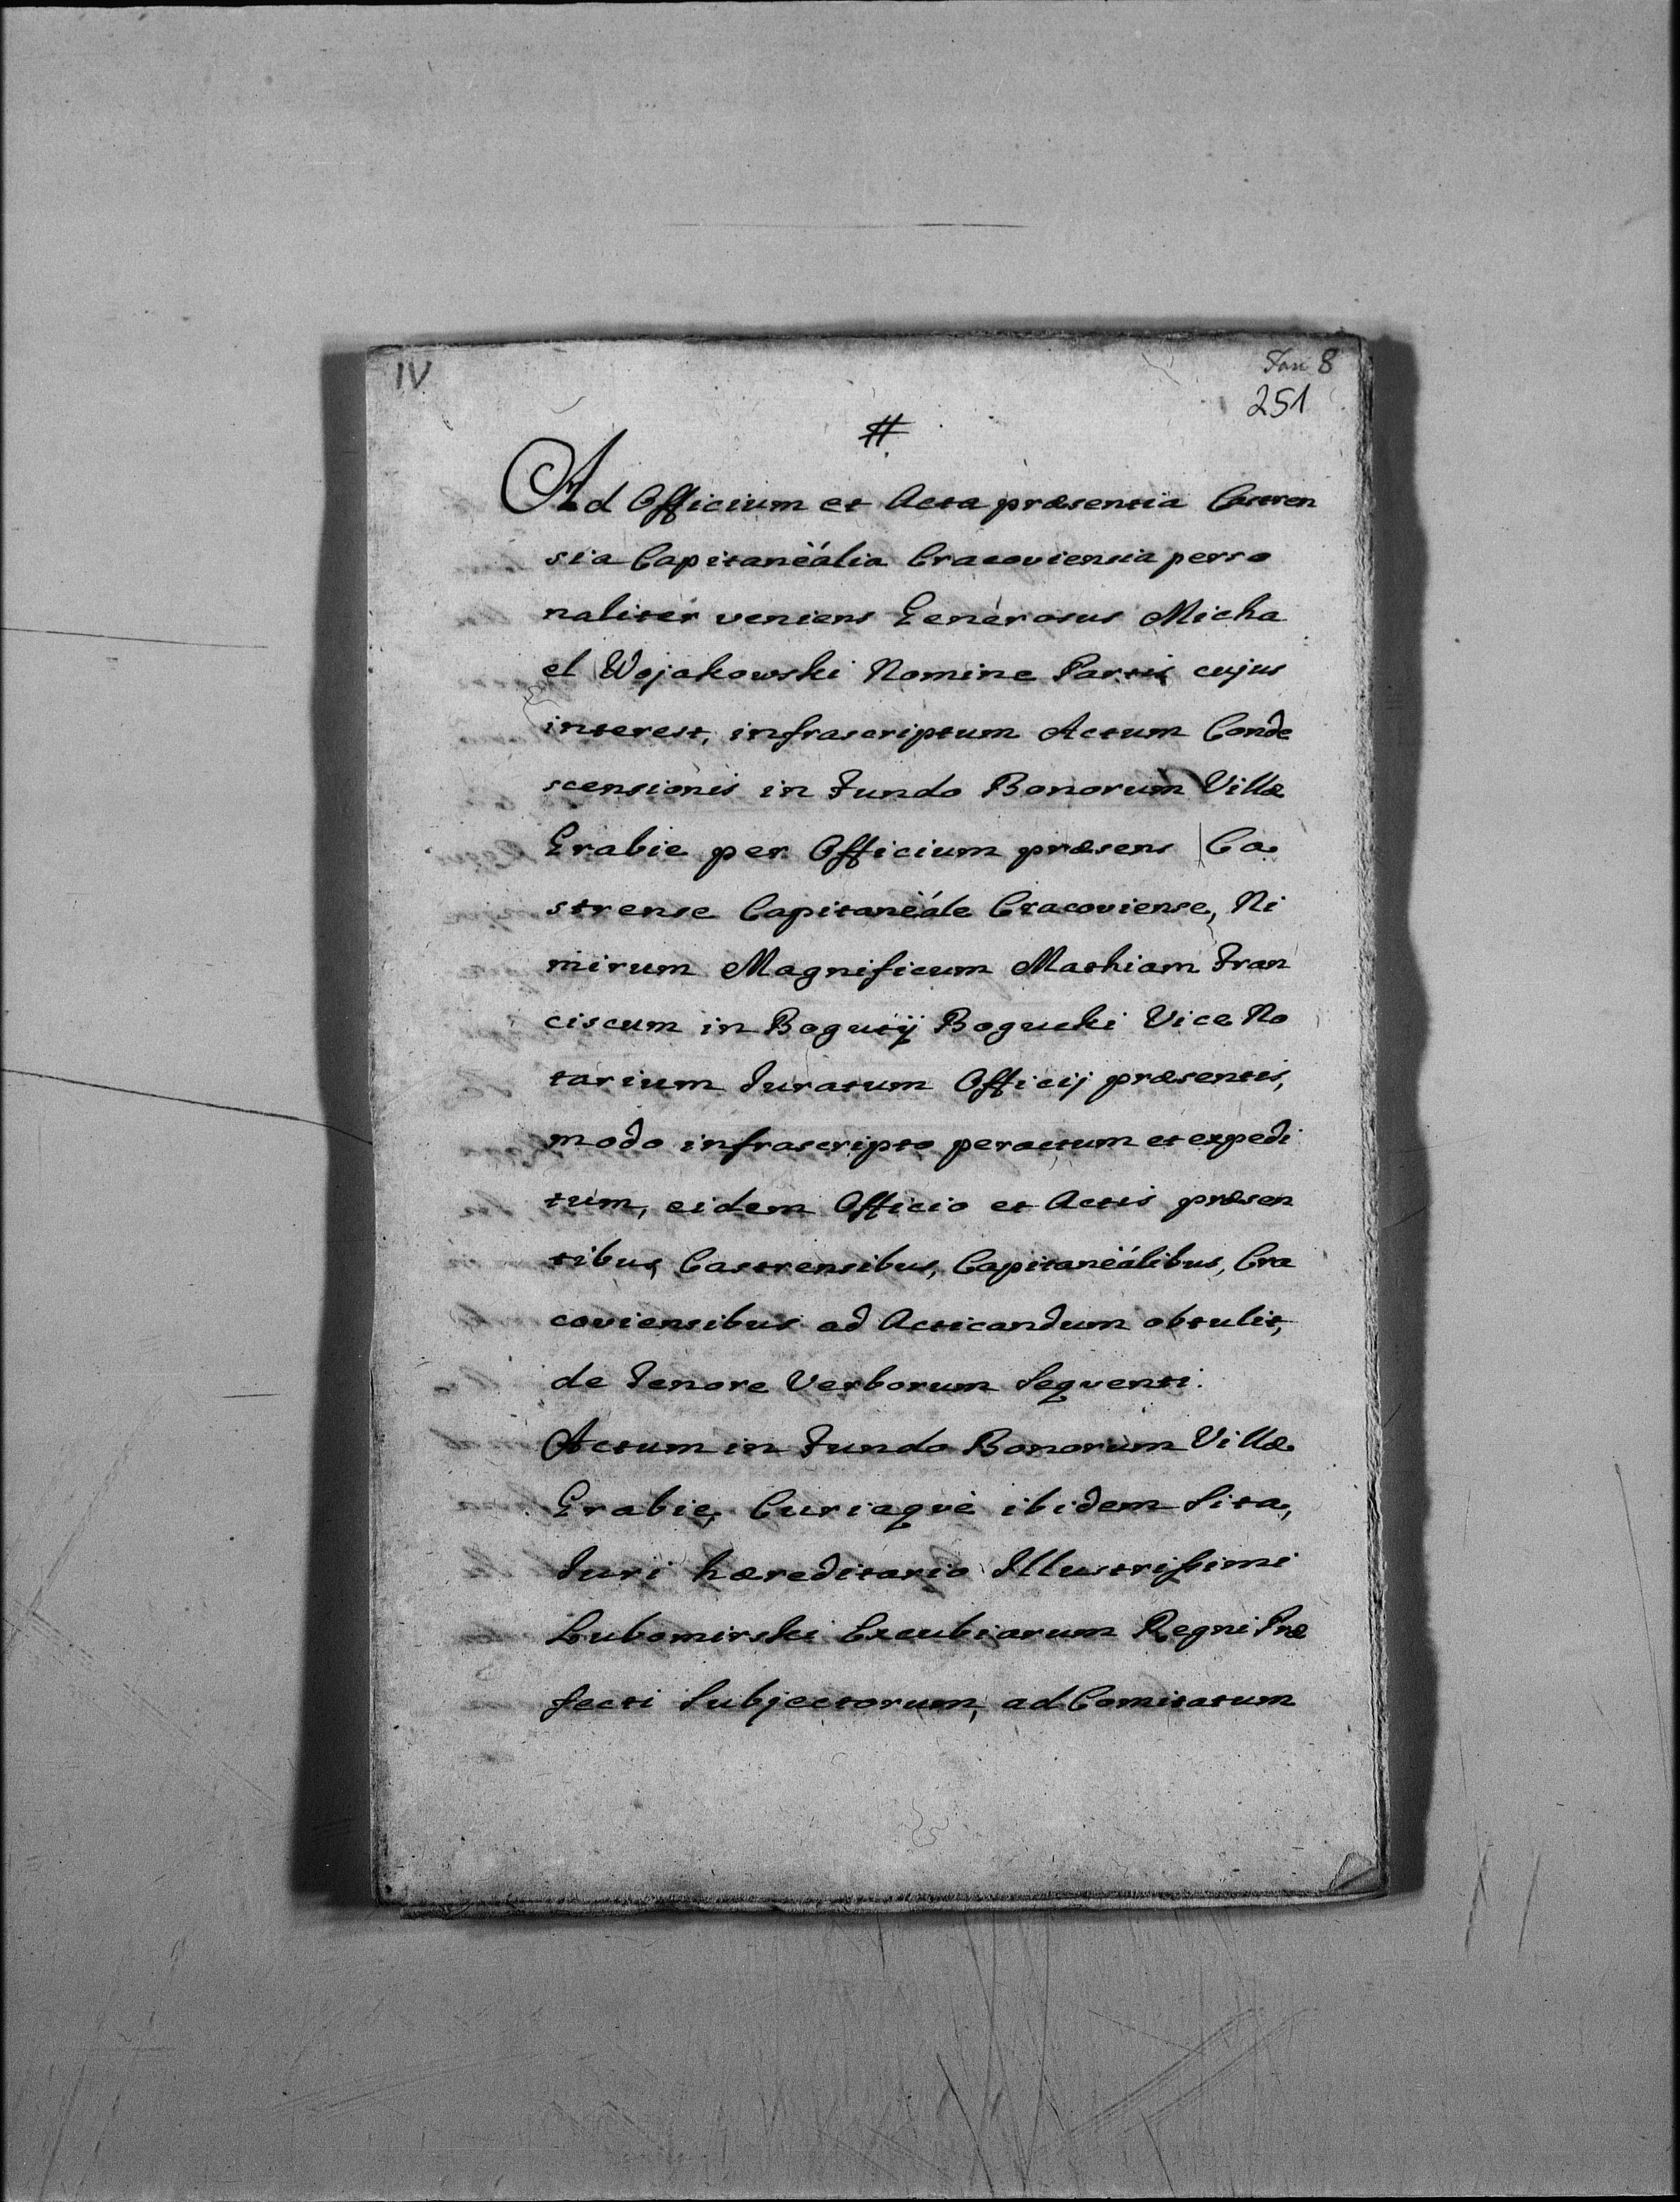 IV
Fan 8
251
#
Ad Officium et Acta præsentia Castren
sia Capitanëália Cracoviensia perso
naliter veniens Generosus Micha
el Wojakowski Nomine Partis cujus
interest, infrascriptum Actum Conde
scensionis in Fundo Bonorum Villæ
Grabie per Officium præsens Ca
strense Capitanëále Cracoviense, Ni
mirum Magnificum Mathiam Fran
ciscum in Bogutÿ Bogucki Vice No
tarium Juratum Officij præsentis,
modo infrascripto peractum et expedi
tum, eidem Officio et Actis præsen
tibus, Castrensibus, Capitanëálibus, Cra
coviensibus ad Acticandum obtulit,
de Tenore Verborum Sequenti.
Actum in Fundo Bonorum Villæ
Grabie, Curiaquè ibidem Sita,
Juri hæreditario Illustrissimi
Lubomirski Excubiarum Regni Præ
fecti Subjectorum, ad Comitatum